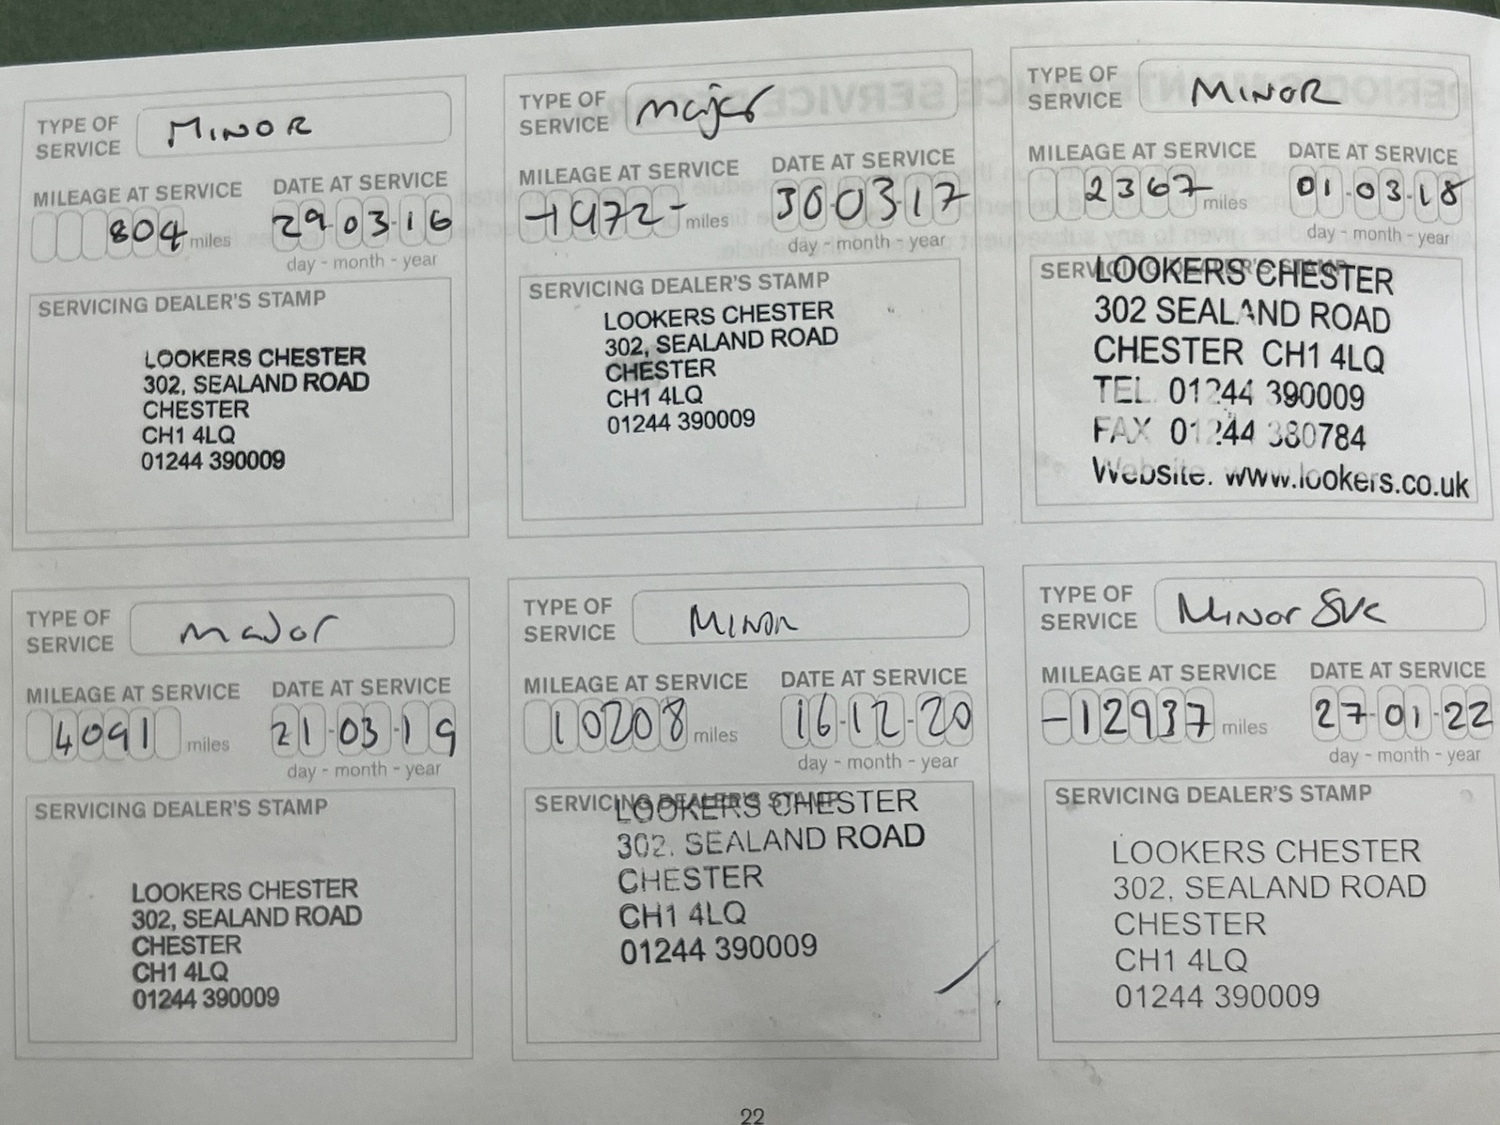 TYPE OF
SERVICE
MINOR
MILEAGE AT SERVICE
DATE AT SERVICE
804 miles
29-03-16
day - month - year
SERVICING DEALER'S STAMP
LOOKERS CHESTER
302, SEALAND ROAD
CHESTER
CH1 4LQ
01244 390009
TYPE OF
SERVICE
major
MILEAGE AT SERVICE
DATE AT SERVICE
-1972- miles
30-03-17
day - month - year
SERVICING DEALER'S STAMP
LOOKERS CHESTER
302, SEALAND ROAD
CHESTER
CH1 4LQ
01244 390009
TYPE OF
SERVICE
MINOR
MILEAGE AT SERVICE
DATE AT SERVICE
2367 miles
01-03-18
day - month - year
SERVICING DEALER'S STAMP
LOOKERS CHESTER
302 SEALAND ROAD
CHESTER CH1 4LQ
TEL. 01244 390009
FAX 01244 380784
Website. www.lookers.co.uk
TYPE OF
SERVICE
MaJor
MILEAGE AT SERVICE
DATE AT SERVICE
4091 miles
21-03-19
day - month - year
SERVICING DEALER'S STAMP
LOOKERS CHESTER
302, SEALAND ROAD
CHESTER
CH1 4LQ
01244 390009
TYPE OF
SERVICE
Minor
MILEAGE AT SERVICE
DATE AT SERVICE
10208 miles
16-12-20
day - month - year
SERVICING DEALER'S STAMP
LOOKERS CHESTER
302, SEALAND ROAD
CHESTER
CH1 4LQ
01244 390009
TYPE OF
SERVICE
Minor Svc
MILEAGE AT SERVICE
DATE AT SERVICE
-12937 miles
27-01-22
day - month - year
SERVICING DEALER'S STAMP
LOOKERS CHESTER
302, SEALAND ROAD
CHESTER
CH1 4LQ
01244 390009
22